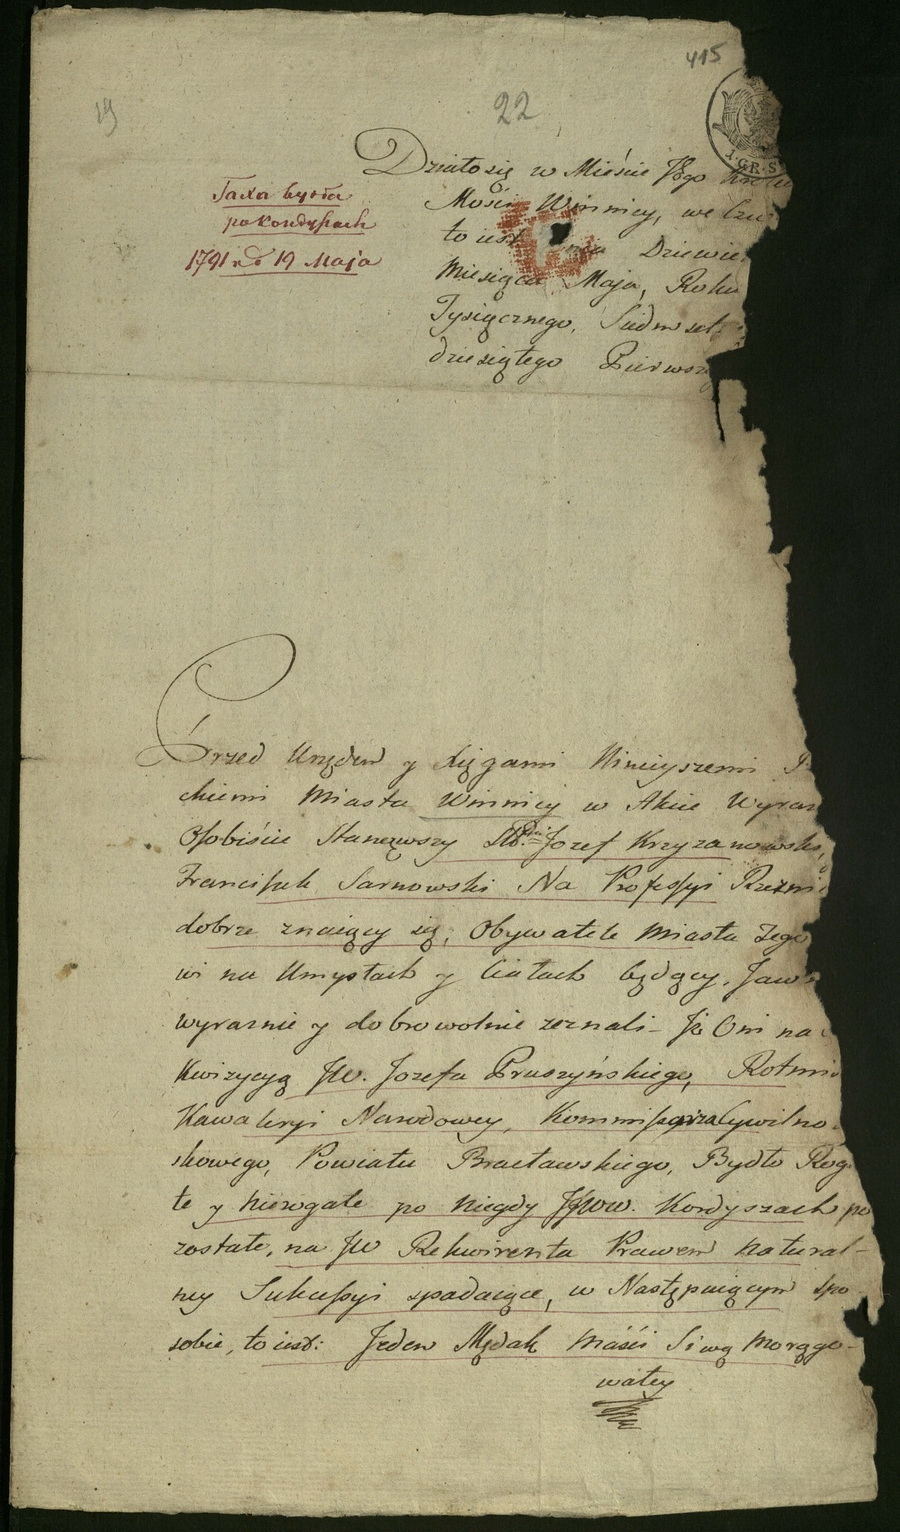 415
19
22
1·GR·S
Taxa bydła
po Kordyszach
1791 od 19 Maja
Działo się w Mieście JKgo Król
Mości Winnicy, we Czw
to iest Dnia Dziewię
Miesiąca Maja, Roku
Tysiącznego, Siedmset
dziesiątego Pierwszeg
Przed Urzędem y Xięgami Ninieyszemi
ckiemi Miasta Winnicy w Akcie Wyraz
Osobiście Stanąwszy Jozef Krzyzanowski,
Franciszek Sarnowski Na Professyi Rzezni
dobrze znaiący się, Obywatele Miasta Tego
wi na Umysłach y Ciałach będący, Jaw
wyraznie y dobrowolnie zeznali – Jż Oni na
kwizycyą JW. Jozefa Pruszyńskiego, Rotmi
Kawaleryi Narodowey, Kommissarza Cywilno
skowego, Powiatu Bracławskiego, Bydło Roga
te y nierogate po niegdy JJWW. Kordyszach po
zostałe, na JW Rekwirenta Prawem natural-
ney Sukcessyi spadaiące, w Następuiącym spo
sobie, to iest: Jeden Mędak Maści Siwą morągo-
watey